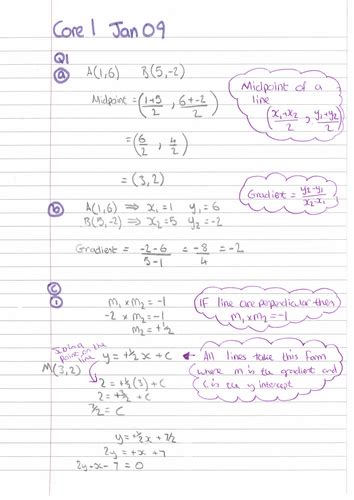 Core 1 Jan 09
Q1
(a) A(1,6) B(5,-2)
Midpoint = (1+5/2 , 6+-2/2)
= (6/2 , 4/2)
= (3,2)
Midpoint of a line
(x₁+x₂/2 , y₁+y₂/2)
(b) A(1,6) ⇒ x₁=1 y₁=6
B(5,-2) ⇒ x₂=5 y₂=-2
Gradient = y₂-y₁/x₂-x₁
Gradient = -2-6/5-1 = -8/4 = -2
(c)
(i) m₁ × m₂ = -1
-2 × m₂ = -1
m₂ = +½
If line are perpendicular then
m₁ × m₂ = -1
point on the line
M(3,2)
y = +½x + c
← All lines take this form
where m is the gradient and
c is the y intercept
2 = +½(3) + c
2 = +3/2 + c
½ = c
y = +½x + ½
2y = +x + 7
2y - x - 7 = 0